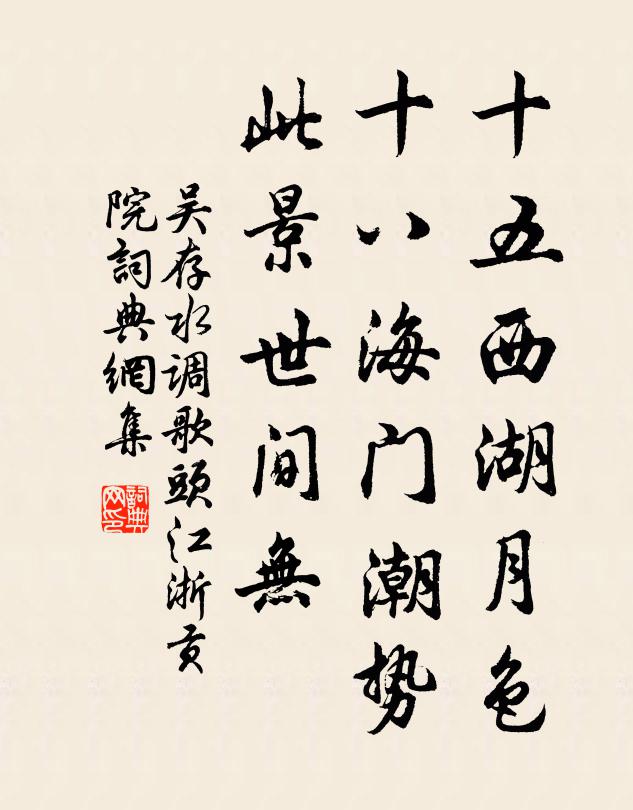 十五西湖月色
十八海门潮势
此景世间無
吴存水调歌頭江浙贡
院詞典網集
詞典网印